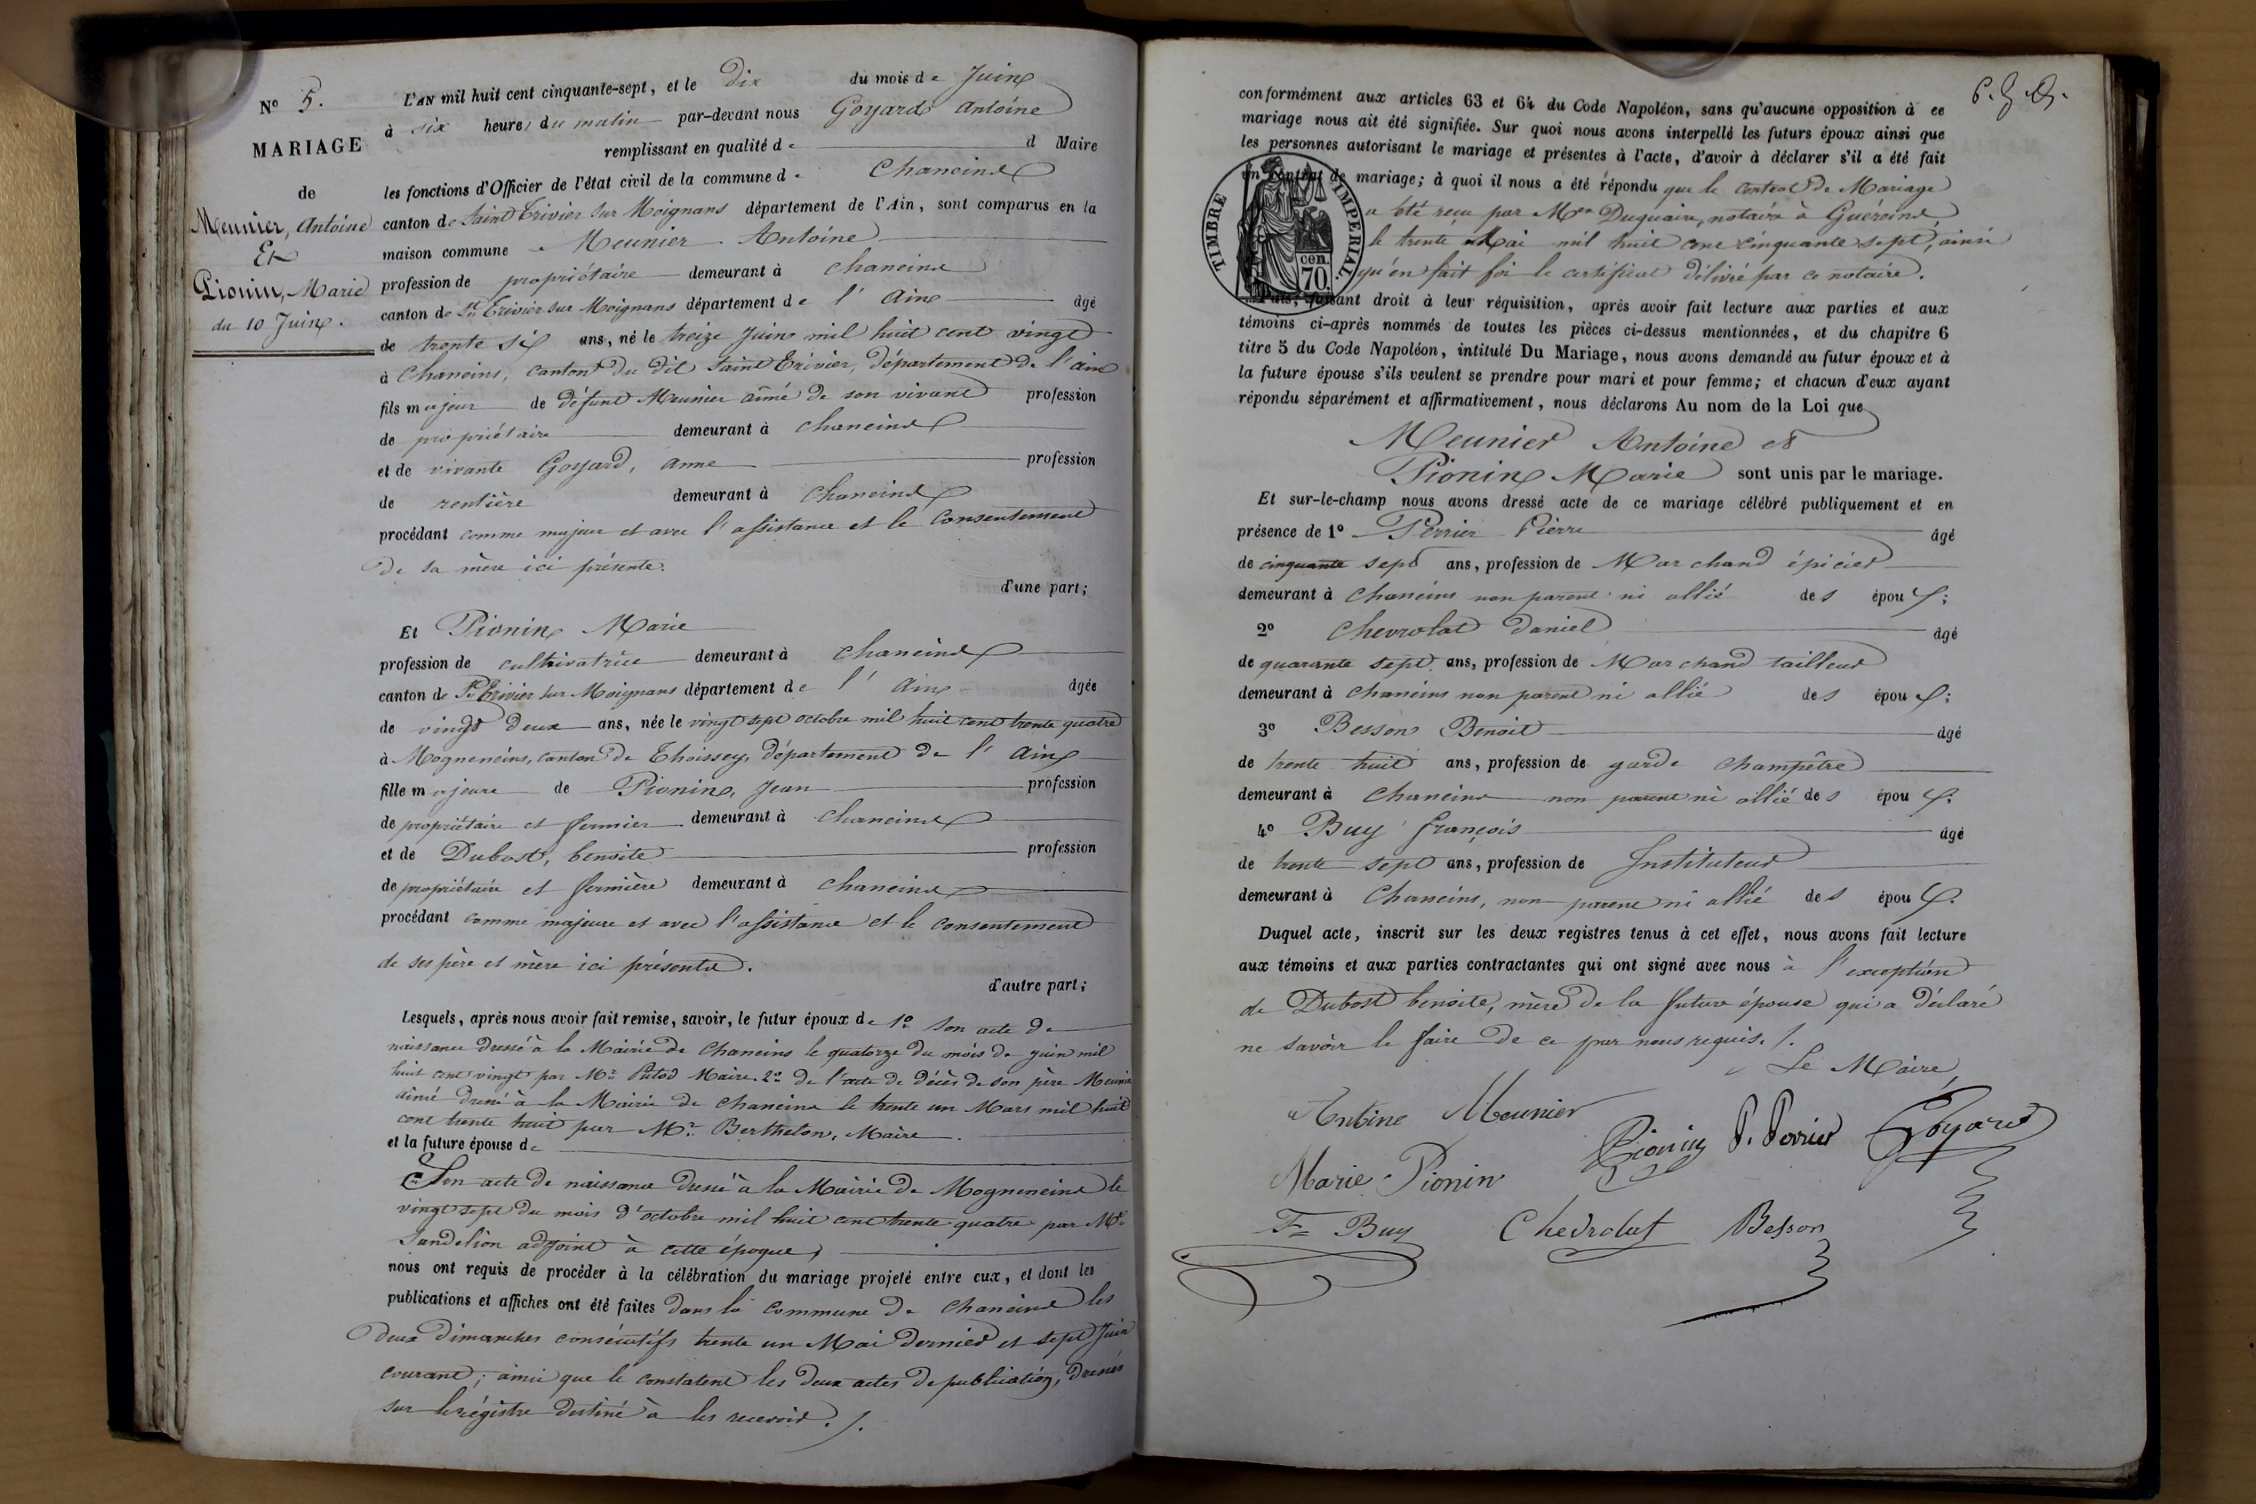 N° 5.
MARIAGE
de
Meunier, Antoine
Et
Pionin, Marie
du 10 Juin.
L'AN mil huit cent cinquante-sept, et le Dix du mois de Juin
à six heures du matin par-devant nous Goyard Antoine
remplissant en qualité de d Maire
les fonctions d'Officier de l'état civil de la commune de Chaneins
canton de Saint Trivier sur Moignans département de l'Ain, sont comparus en la
maison commune Meunier Antoine
profession de propriétaire demeurant à Chaneins
canton de St Trivier sur Moignans département de l'Ain âgé
de trente six ans, né le treize Juin mil huit cent vingt
à Chaneins, canton du dit Saint Trivier, département de l'ain
fils majeur de défunt Meunier aimé de son vivant profession
de propriétaire demeurant à Chaneins
et de vivante Goyard, anne profession
de rentière demeurant à Chaneins
procédant comme majeur et avec l'assistance et le consentement
de sa mère ici présente.
d'une part;
Et Pionin Marie
profession de cultivatrice demeurant à Chaneins
canton de St Trivier sur Moignans département de l'Ain âgée
de vingt deux ans, née le vingt sept octobre mil huit cent trente quatre
à Mogneneins, canton de Thoissey, département de l'Ain
fille majeure de Pionin, Jean profession
de propriétaire et fermier demeurant à Chaneins
et de Dubost, benoite profession
de propriétaire et fermière demeurant à Chaneins
procédant comme majeure et avec l'assistance et le consentement
de ses père et mère ici présents.
d'autre part;
Lesquels, après nous avoir fait remise, savoir, le futur époux de 1° Son acte de
naissance dressé à la Mairie de Chaneins le quatorze du mois de juin mil
huit cent vingt par Mr Putod Maire. 2° de l'acte de décès de son père Meunier
aimé dressé à la Mairie de Chaneins le trente un Mars mil huit
cent trente huit par Mr. Berthelon, Maire.
et la future épouse de
Son acte de naissance dressé à la Mairie de Mogneneins le
vingt sept du mois d'octobre mil huit cent trente quatre par Mr
Sandelion adjoint à cette époque,
nous ont requis de procéder à la célébration du mariage projeté entre eux, et dont les
publications et affiches ont été faites dans la commune de Chaneins les
deux dimanches consécutifs trente un Mai dernier et sept Juin
courant; ainsi que le constatent les deux actes de publication, dressés
sur le régistre destiné à les recevoir. /.
conformément aux articles 63 et 64 du Code Napoléon, sans qu'aucune opposition à ce
mariage nous ait été signifiée. Sur quoi nous avons interpellé les futurs époux ainsi que
les personnes autorisant le mariage et présentes à l'acte, d'avoir à déclarer s'il a été fait
un contrat de mariage; à quoi il nous a été répondu que le contrat de Mariage
a été reçu par Me Duquaire, notaire à Guéreins
le trente Mai mil huit cent cinquante sept, ainsi
qu'en fait foi le certificat délivré par ce notaire.
TIMBRE IMPERIAL.
70. cen.
Puis, faisant droit à leur réquisition, après avoir fait lecture aux parties et aux
témoins ci-après nommés de toutes les pièces ci-dessus mentionnées, et du chapitre 6
titre 5 du Code Napoléon, intitulé Du Mariage, nous avons demandé au futur époux et à
la future épouse s'ils veulent se prendre pour mari et pour femme; et chacun d'eux ayant
répondu séparément et affirmativement, nous déclarons Au nom de la Loi que
Meunier Antoine et
Pionin Marie sont unis par le mariage.
Et sur-le-champ nous avons dressé acte de ce mariage célébré publiquement et en
présence de 1° Perrier Pierre âgé
de cinquante sept ans, profession de Marchand épicier
demeurant à Chaneins non parent ni allié des époux;
2° Chevrolat Daniel âgé
de quarante sept ans, profession de Marchand tailleur
demeurant à Chaneins non parent ni allié des époux;
3° Besson Benoit âgé
de trente huit ans, profession de garde Champêtre
demeurant à Chaneins non parent ni allié des époux;
4° Buy françois âgé
de trente sept ans, profession de Instituteur
demeurant à Chaneins, non parent ni allié des époux.
Duquel acte, inscrit sur les deux registres tenus à cet effet, nous avons fait lecture
aux témoins et aux parties contractantes qui ont signé avec nous à l'exception
de Dubost benoite, mère de la future épouse qui a déclaré
ne savoir le faire de ce par nous requis. /.
Le Maire,
Antoine Meunier
Pionin P. Perrier Goyard
Marie Pionin
Fs Buy Chevrolat Besson